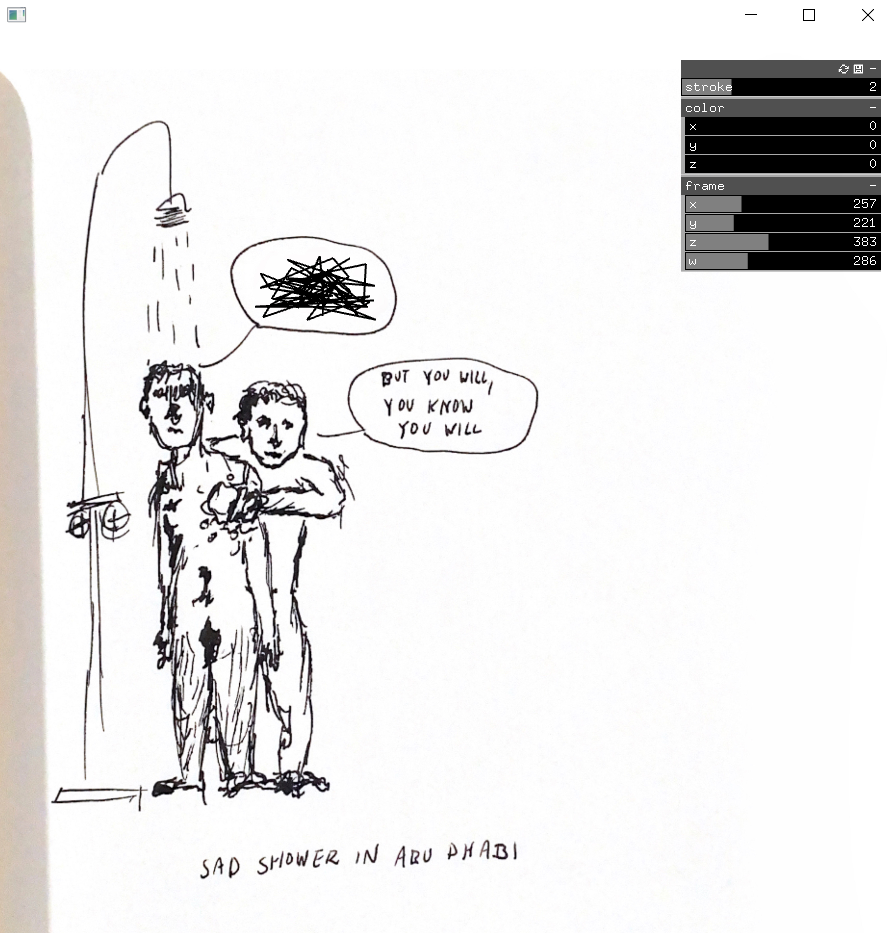 stroke 2
color
x 0
y 0
z 0
frame
x 257
y 221
z 383
w 286
BUT YOU WILL,
YOU KNOW
YOU WILL
SAD SHOWER IN ABU DHABI